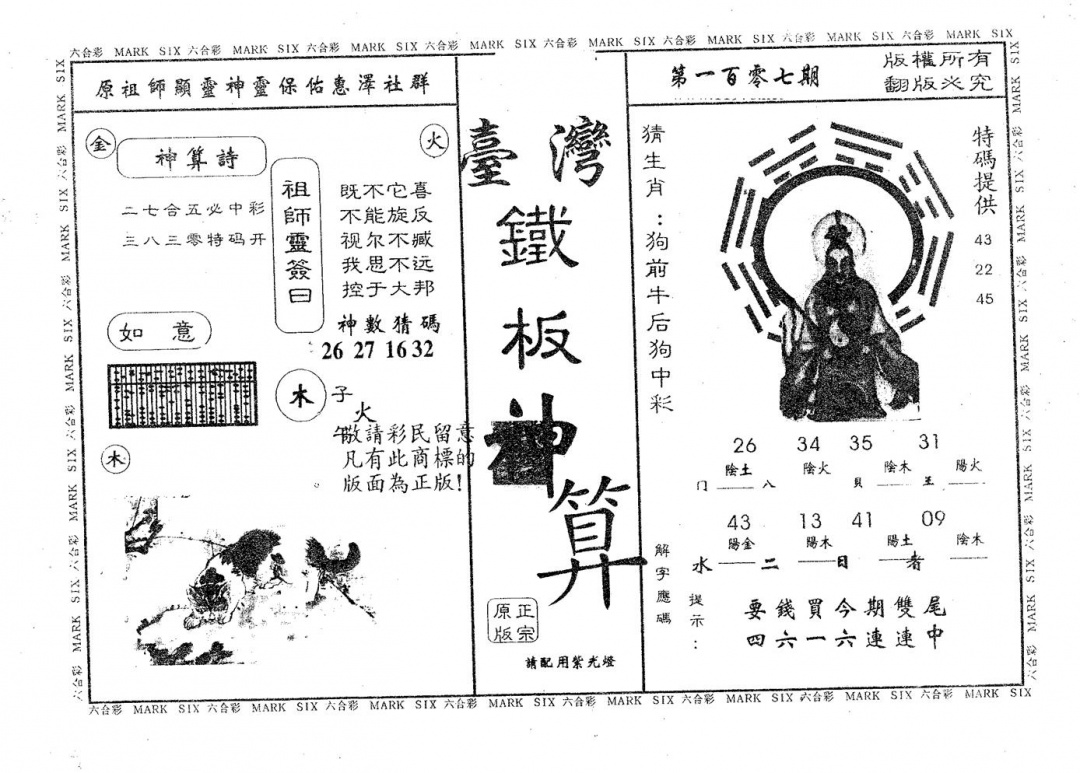 六合彩 MARK SIX 六合彩 MARK SIX 六合彩 MARK SIX 六合彩 MARK SIX 六合彩 MARK SIX 六合彩 MARK SIX 六合彩 MARK SIX 六合彩 MARK SIX
原祖師顯靈神靈保佑惠澤社群
金
火
神算詩
二七合五必中彩
三八三零特码开
祖師靈簽曰
既不它喜
不能旋反
视尔不臧
我思不远
控于大邦
神數猜碼
26 27 16 32
如意
木
子
火
午
敬請彩民留意
凡有此商標的
版面為正版!
木
臺灣
鐵
板
神
算
正宗
原版
請配用紫光燈
第一百零七期
版權所有
翻版必究
猜生肖：狗前牛后狗中彩
特碼提供
43
22
45
26 34 35 31
陰土 陰火 陰木 陽火
门 八 貝 王
43 13 41 09
陽金 陽木 陽土 陰木
水 二 日 者
解字應碼
提示：
要錢買今期雙尾
四六一六連連中
六合彩 MARK SIX 六合彩 MARK SIX 六合彩 MARK SIX 六合彩 MARK SIX 六合彩 MARK SIX 六合彩 MARK SIX 六合彩 MARK SIX 六合彩 MARK SIX